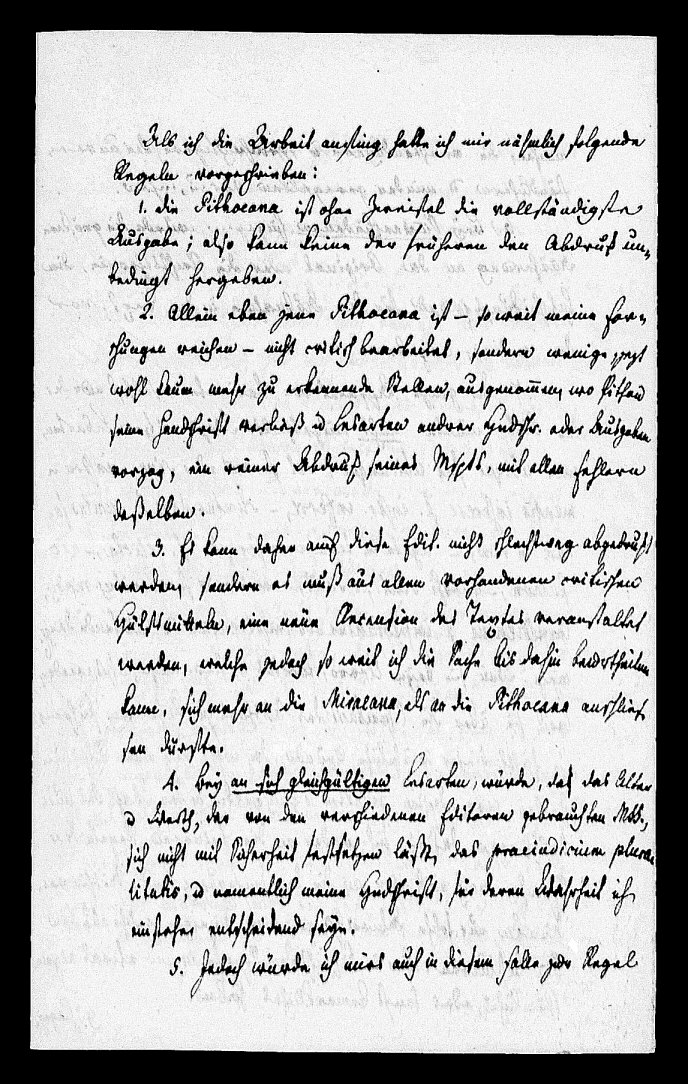 Als ich die Arbeit anfing hatte ich mir nähmlich folgende
Regeln vorgeschrieben:
1. die Pithoeana ist ohne Zweifel die vollständigste
Ausgabe; also kann keine der früheren den Abdruck un-
bedingt hergeben.
2. Allein eben jene Pithoeana ist – so weit meine For-
schungen reichen – nicht critisch bearbeitet, sondern wenige jezt
wohl kaum mehr zu erkennende Stellen, ausgenommen, wo Pithou
seine Handschrift verließ u Lesarten andrer Hndschr. oder Ausgaben
vorzog, ein reiner Abdruck seines Mscpts, mit allen Fehlern
desselben.
3. Es kann daher auch diese Edit. nicht schlechtweg abgedruckt
werden, sondern es muß aus allen vorhandenen critischen
Hülfsmitteln, eine neüe Recension des Textes veranstaltet
werden, welche jedoch, so weit ich die Sache bis dahin beurtheilen
kann, sich mehr an die Miraeana, als an die Pithoeana anschlies-
sen durfte.
4. Bey an sich gleichgültigen Lesarten, würde, da das Alter
u Werth, der von den verschiedenen Editoren gebrauchten Mss.,
sich nicht mit Sicherheit festsetzen läßt, das praeiudicium plura-
litatis, u namentlich meine Hndschrift, für deren Wahrheit ich
einstehe, entscheidend seyn.
5. Jedoch würde ich mirs auch in diesem Falle zur Regel